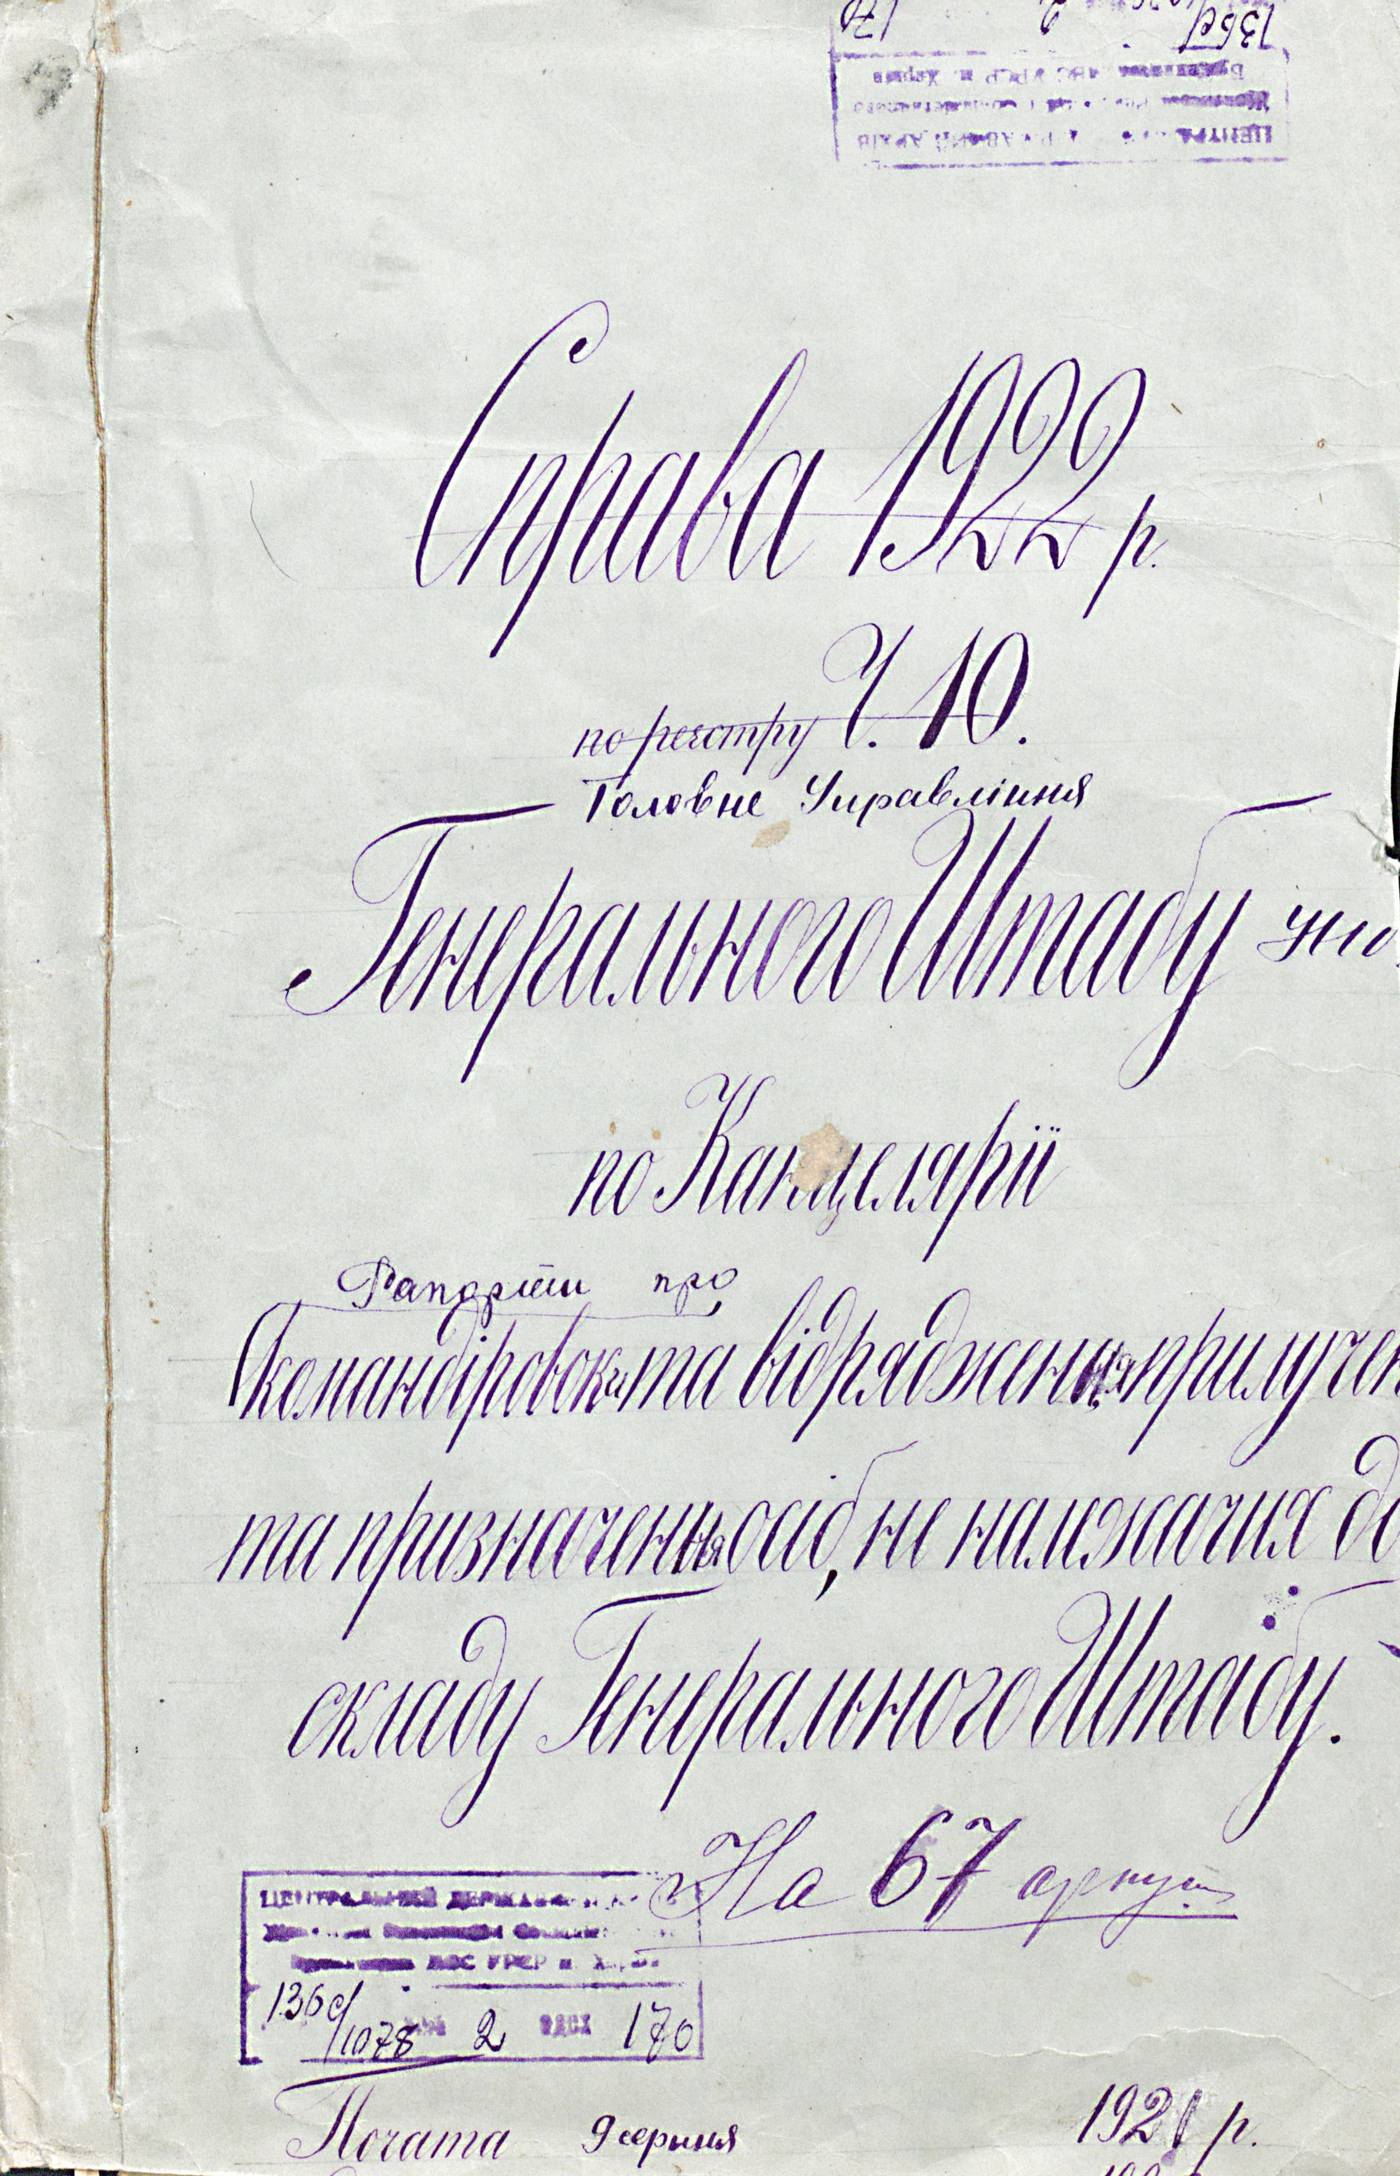 136с/ 2 170
ЦЕНТРА АРХІВ
УРСР м. Харків
Справа 1922 р.
по реєстру Ч. 10.
Головне Управління
Генерального Штабу УНР
по Канцелярії
Рапорти про
командіровки та відрядження прилучен
та призначення осіб, не належачих до
складу Генерального Штабу.
На 67 аркуш
ЦЕНТРАЛЬНИЙ ДЕРЖАВ
МВС УРСР м. Харків
136с/1078 2 170
Почата 9 серпня 1921 р.